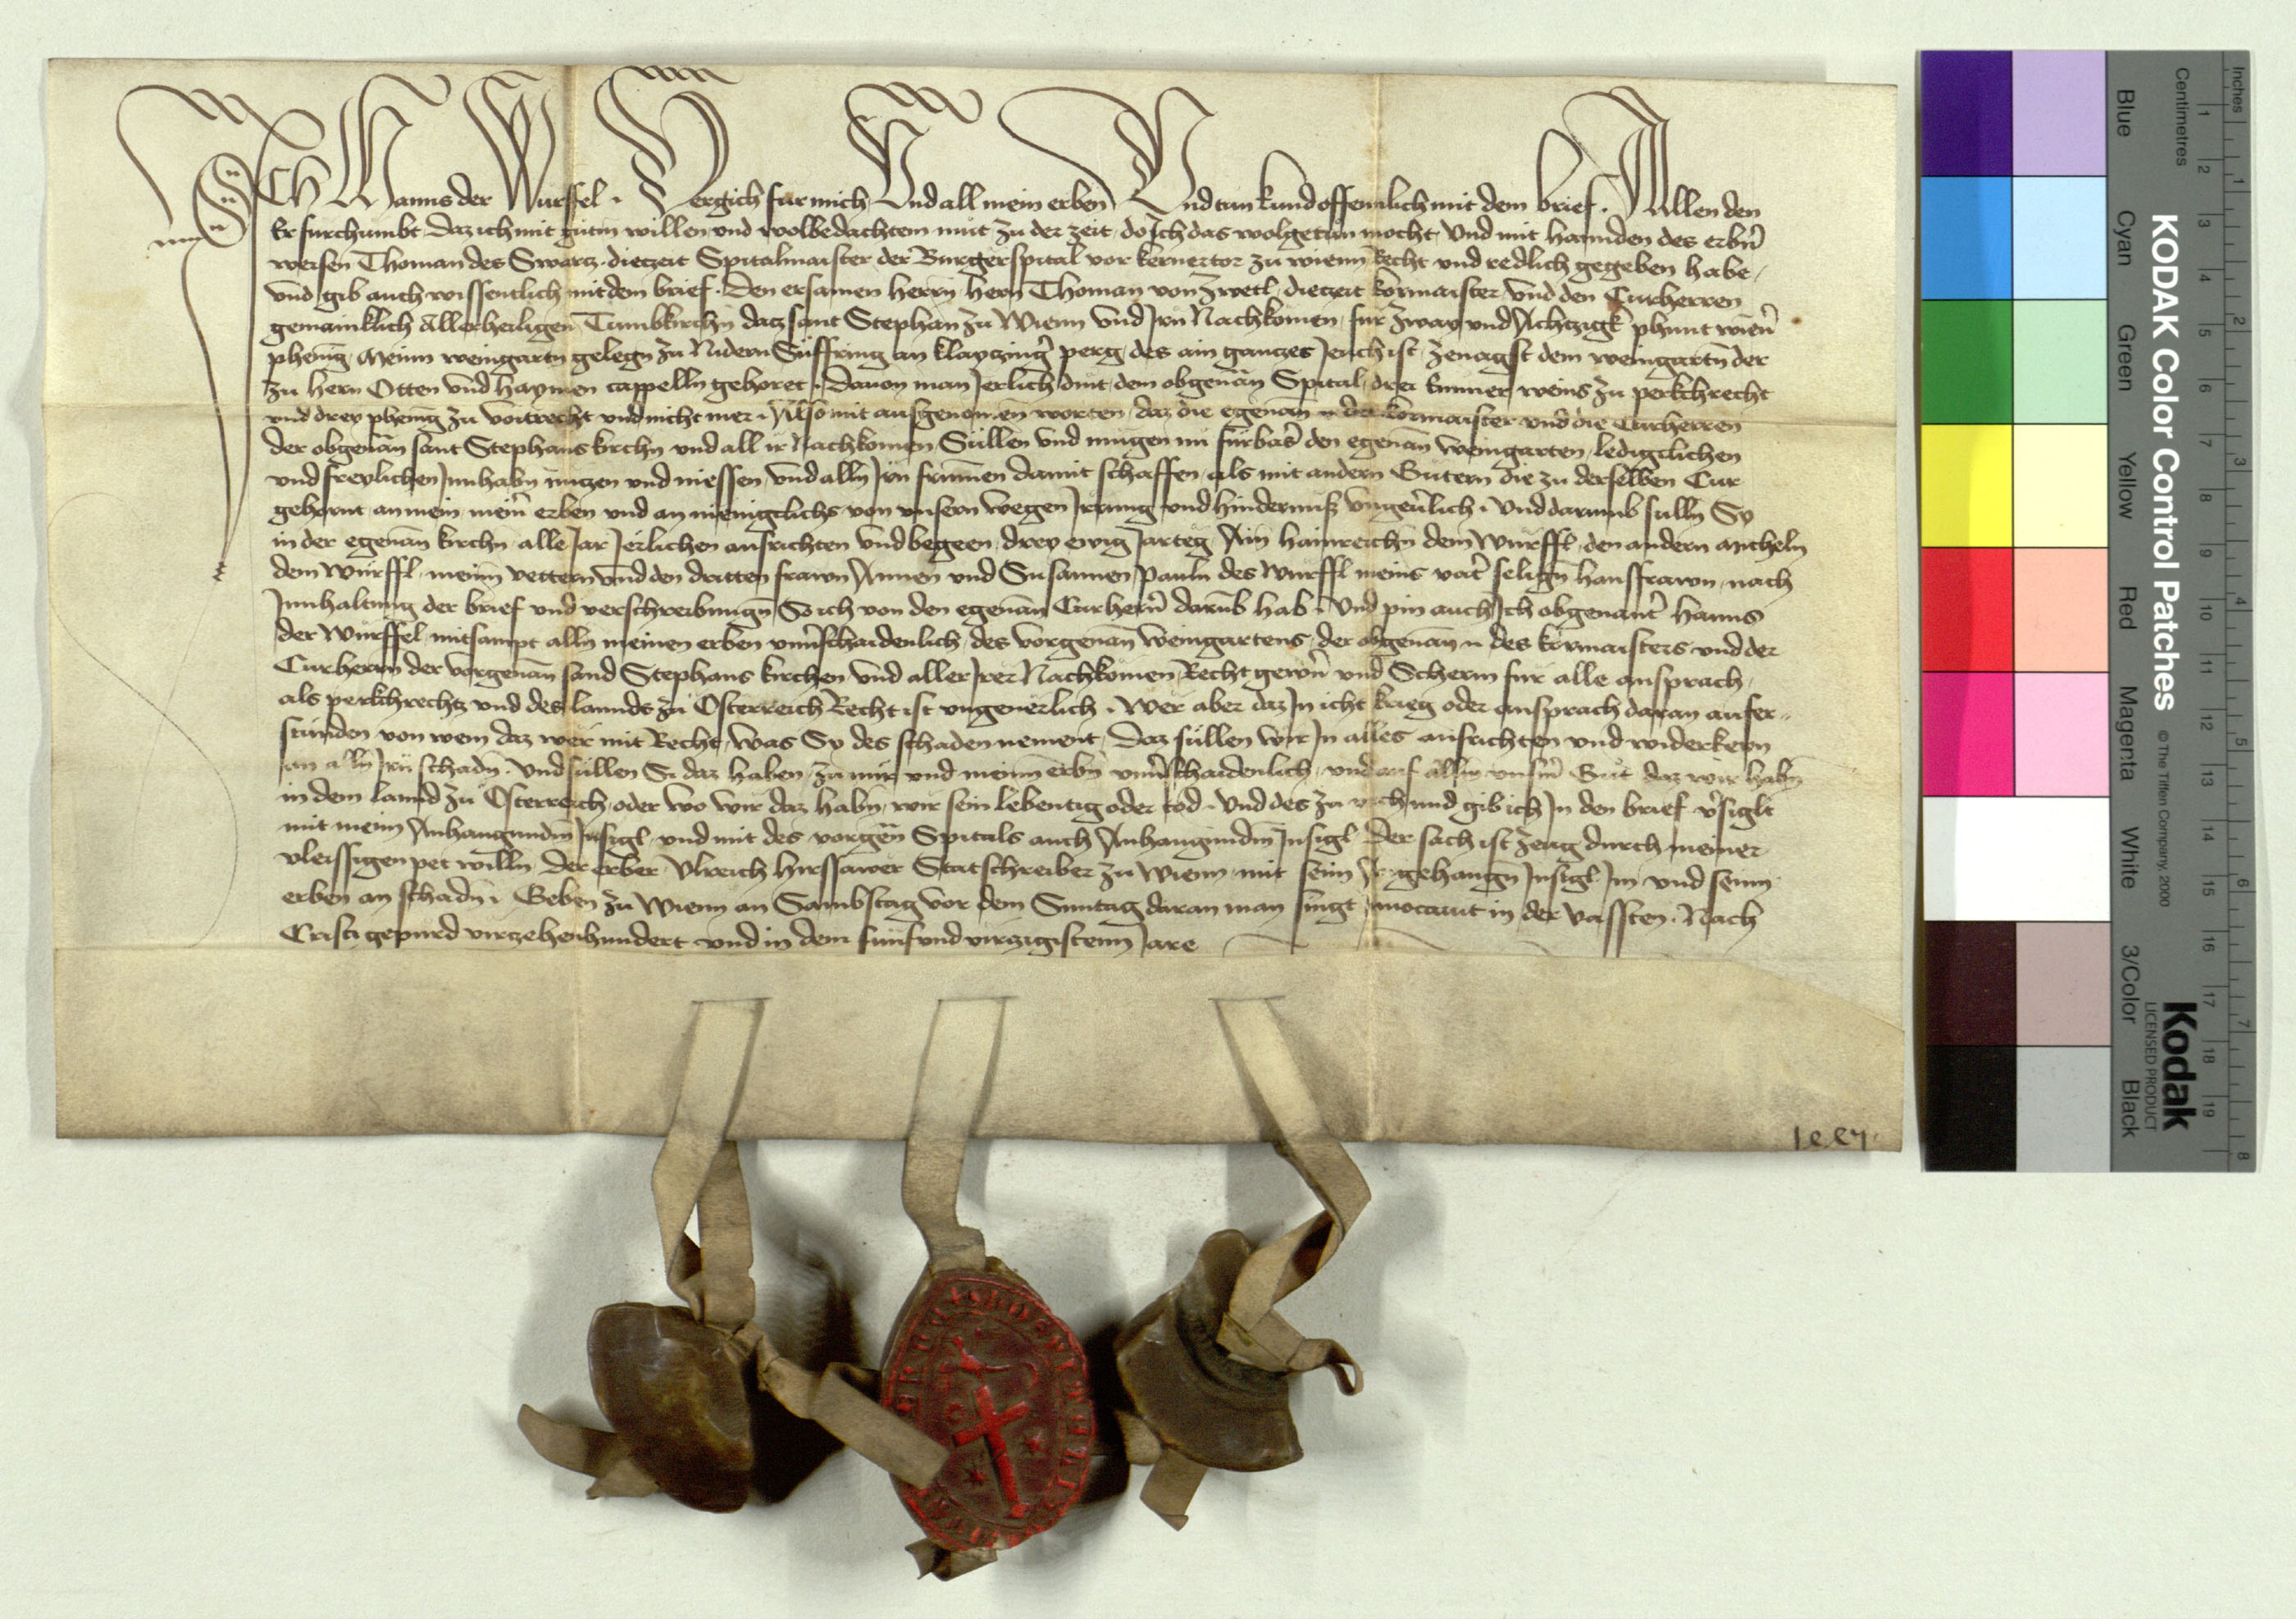 Ich Hanns der Würffel · Vergich für mich Vnd all mein erben Vnd tun kund offennlich mit dem brief · Allen den
Er fürchumbt daz ich mit gütm willen vnd wolbedachtem müt zu der zeit do Ich das wolgetün mocht Vnd mit hannden des erbñ
weisen Thoman des Swartz diezeit Spitalmaister der Burgerspital vor kernertor zu wienn Recht vnd redlich gegeben habe
vnd gib auch wissentlich mit dem brief · Den ersamen herrn hern Thoman von Zwetl diezeit kormaister vnd den Curherren
gemainklich Allerheiligen Tumbkirchn daz sant Stephan zu Wienn Vnd Irn Nachkomen für Zway vnd Achtzigk phunt wienñ
phenig Meinn weingartn gelegn zu Nidern Süffring an klayczinger perg des ain ganczes Jeuch ist zenagst dem weingartñ der
zu hern Otten vnd haymen cappelln gehoret · Dauon man Jerlich dint dem obgenañ Spital drei Emmer weins zu perkchrecht
vnd drey phenig zu voitrecht vnd nicht mer · Also mit ausgenomen worten daz die egenañ der kormaister vnd die Curherren
der obgenañ sant Stephans kirchn vnd all ir Nachkomen Süllen vnd mügen nu fürbas den egenañ weingarten ledigclichen
vnd freylichen Innhabn nüczen vnd niessen vnd alln Irn frumen damit schaffen als mit andern Gütern die zu derselben Cur
gehornt an mein meiñ erben vnd an menigclichs von vnsern wegen Irrung vnd hindernüss vngeuerlich · Vnd darumb sulln Sy
in der egenañ kirchn alle Jar Jerlichen ausrichten vnd begeen drey ewig Jarteg Ain hainreichñ dem Würffl den andern Micheln
dem Würffl meinn vettern vnd den dritten frawn Annen vnd Susannen Pauln des Würffl meins vater seligñ hausfrawn nach
Innhaltung der brief vnd verschreibungñ So ich von den egenañ Curherñ darumb hab · Vnd pin auch Ich obgenanter Hanns
der Würffel mitsampt alln meinen erben vnuerschaidenlich des vorgenañ weingartens der obgenañ des kormaisters vnd der
Curherrn der vorgenañ sand Stephans kirchen vnd aller Irer Nachkomen Recht gewern vnd Scherm für alle ansprach
als perkchrechtz vnd des lannds zu Österreich Recht ist vngeuerlich · Wer aber daz In icht krieg oder ansprach daran aufer-
stünden von wem daz wer mit Recht was Sy des schaden nement Daz süllen wir In alles ausrichten vnd widerkern
an alln Irn schadn · Vnd süllen Si daz haben zu mir vnd meinn erbñ vnuerschaidenlich vnd auf allm vnserm Güt daz wir habñ
in dem lannd zu Österreich oder wo wir daz habñ wir sein lebentig oder tod · Vnd des zu vrchund gib ich In den brief versiglt
mit meim Anhangundm Insigl vnd mit des vorgeñ Spitals auch Anhangundm Insigl Der sach ist zeug durch meiner
vleissigen pet willn Der erber Vlreich hirssawer Statschreiber zu Wienn mit seim Angehangñ Insigl Im vnd seinn
erben an schadñ · Geben zu Wienn an Sambstag vor dem Sunntag daran man singt Inuocauit in der vassten · Nach
Cristi gepurd virczehenhundert vnd in dem fünfundvirczigistenn Jare
KODAK Color Control Patches
© The Tiffen Company, 2000
Kodak
LICENSED PRODUCT
Blue Cyan Green Yellow Red Magenta White 3/Color Black
Inches 1 2 3 4 5 6 7 8
Centimetres 1 2 3 4 5 6 7 8 9 10 11 12 13 14 15 16 17 18 19